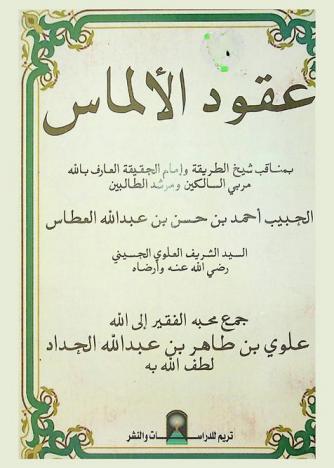 عقود الألماس
بمناقب شيخ الطريقة وإمام الحقيقة العارف بالله
مربي السالكين ومرشد الطالبين
الحبيب أحمد بن حسن بن عبدالله العطاس
السيد الشريف العلوي الحسيني
رضي الله عنه وأرضاه
جمع محبه الفقير إلى الله
علوي بن طاهر بن عبدالله الحداد
لطف الله به
تريم للدراسات والنشر